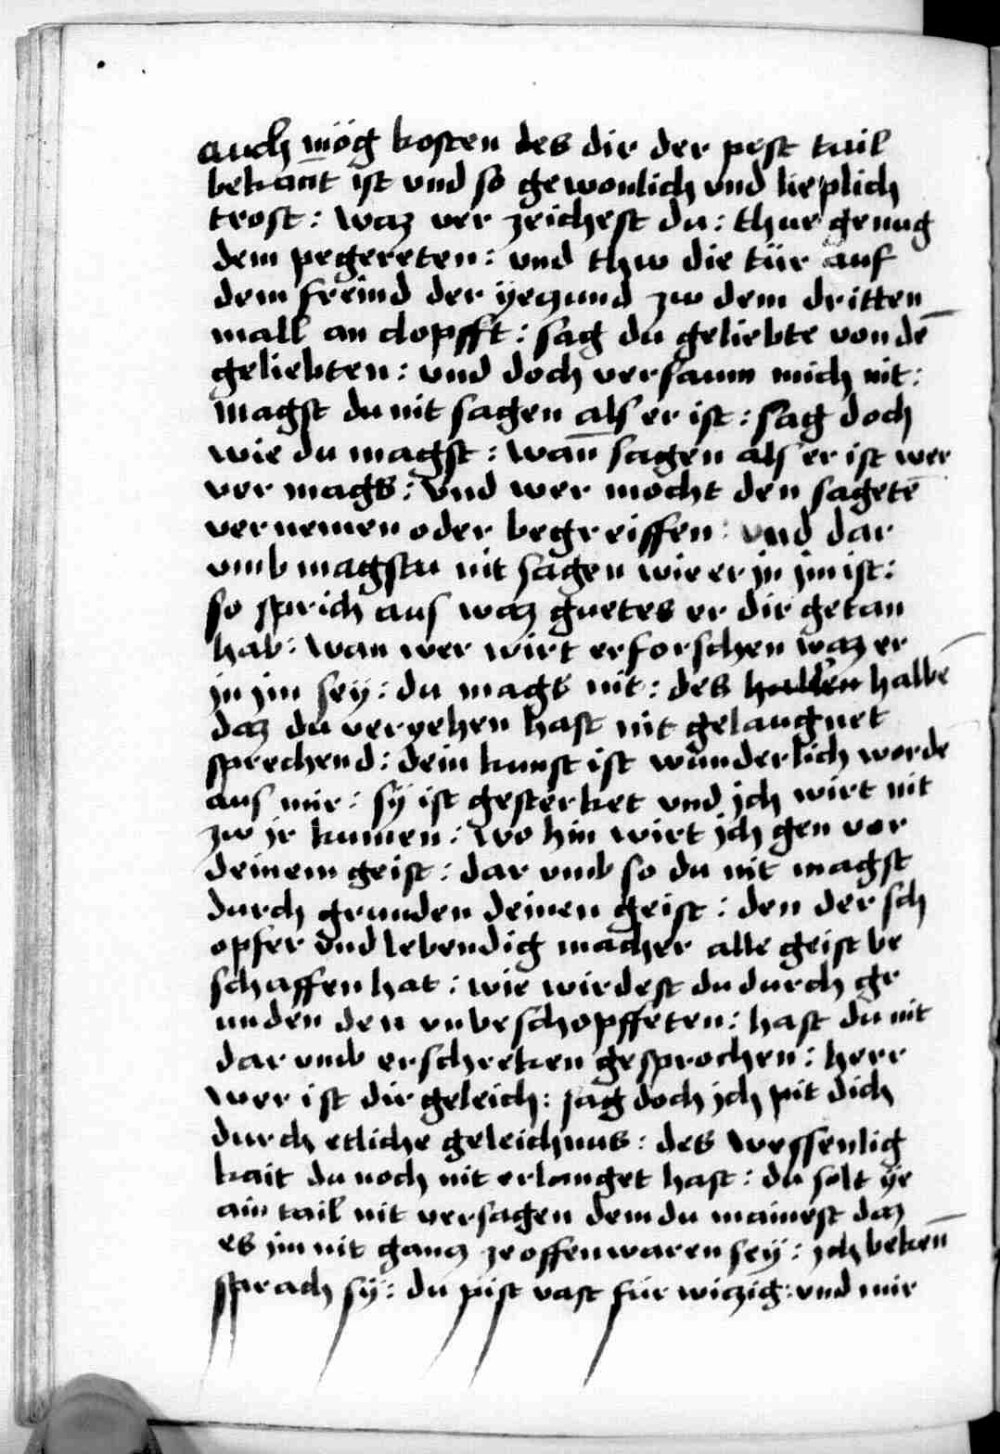 auch mög kosten des dir der pest tail
bekañt ist vnd so gewonlich vnd lieplich
trost : waz ver zeichest du : thue genug
dem pegereten : vnd thw die tür auf
dem freind der yeczund zw dem dritten
mall an clopfft : sag du geliebte von dē
geliebten : vnd doch versaum mich nit :
magst du nit sagen als er ist : sag doch
wie du magst : wañ sagen als er ist wer
ver mags : vnd wer mocht den sagetē
vernemen oder begreiffen : vnd dar
vmb magstu nit sagen wie er jn jm ist :
so sprich aus waz guetes er dir getan
hab : wan wer wirt erforschen waz er
jn jm sey : du mags nit : des halben halbē
daz du veryehen hast nit gelaugnet
sprechend : dein kunst ist wunderlich wordē
aus mir : sy ist gesterket vnd jch wirt nit
zw jr kumen : wo hin wirt jch gen vor
deinem geist : dar vmb so du nit magst
durch grunden deinen geist : den der sch
opfer vnd lebendig macher alle geist be
schaffen hat : wie wirdest du durch gr
unden den vnbeschopffeten : hast du nit
dar vmb erschreken gesprochen : herr
wer ist dir geleich : sag doch jch pit dich
durch etliche geleichnus : des wessenlig
kait du noch nit erlanget hast : du solt ye
ain tail nit versagen dem du mainest daz
es jm nit gancz ze offenwaren sey : jch bekeñ
sprach sy : du pist vast für wiczig : vnd mir